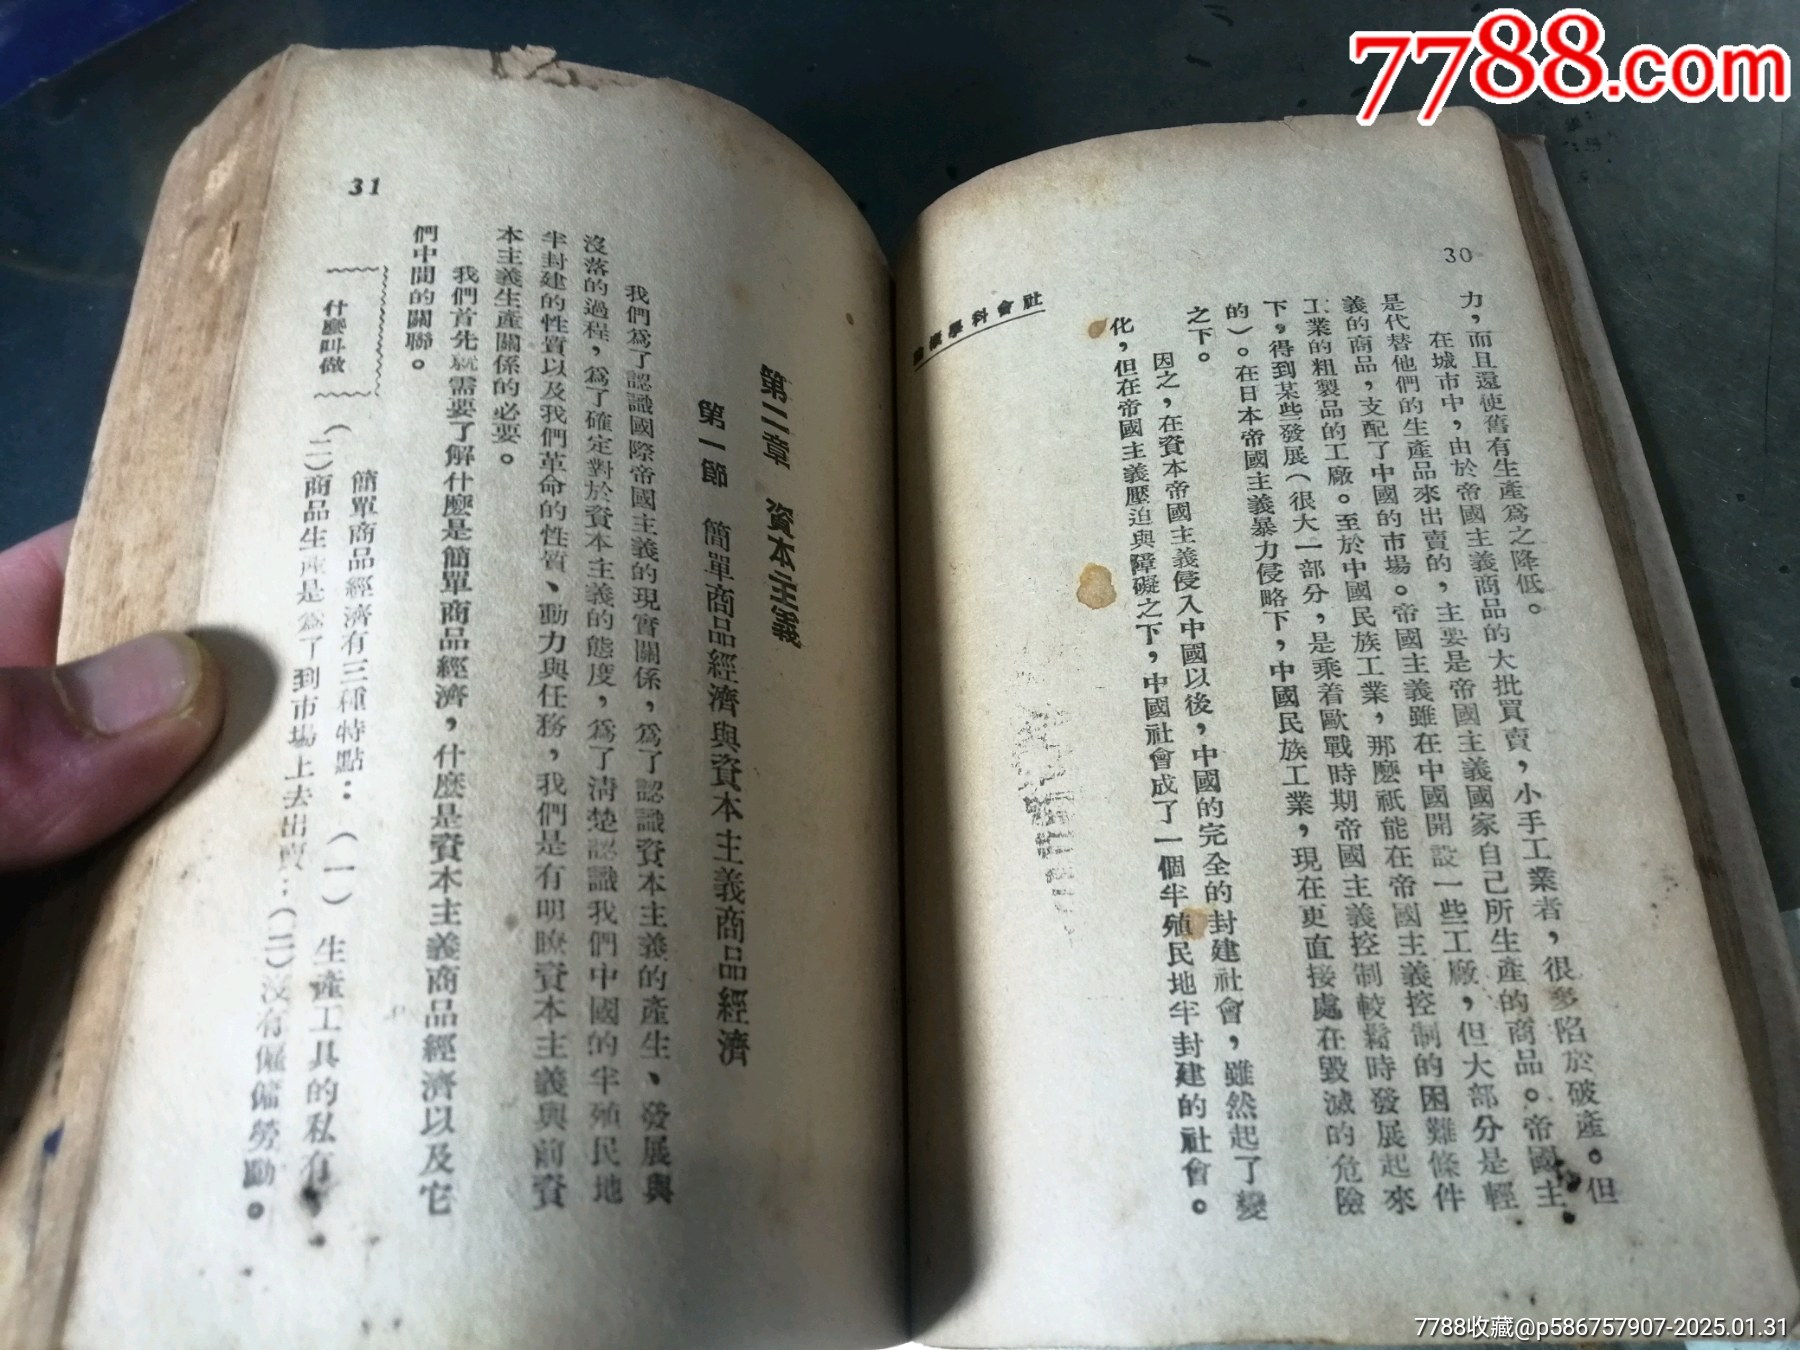 7788.com
30
社會科學概論
力，而且還使舊有生產爲之降低。
在城市中，由於帝國主義商品的大批買賣，小手工業者，很多陷於破產。但
是代替他們的生產品來出賣的，主要是帝國主義國家自己所生產的商品。帝國主
義的商品，支配了中國的市場。帝國主義雖在中國開設一些工廠，但大部分是輕
工業的粗製品的工廠。至於中國民族工業，那麼祇能在帝國主義控制的困難條件
下，得到某些發展（很大一部分，是乘着歐戰時期帝國主義控制較鬆時發展起來
的）。在日本帝國主義暴力侵略下，中國民族工業，現在更直接處在毀滅的危險
之下。
因之，在資本帝國主義侵入中國以後，中國的完全的封建社會，雖然起了變
化，但在帝國主義壓迫與障礙之下，中國社會成了一個半殖民地半封建的社會。
31
第二章 資本主義
第一節 簡單商品經濟與資本主義商品經濟
我們爲了認識國際帝國主義的現實關係，爲了認識資本主義的產生、發展與
沒落的過程，爲了確定對於資本主義的態度，爲了清楚認識我們中國的半殖民地
半封建的性質以及我們革命的性質、動力與任務，我們是有明瞭資本主義與前資
本主義生產關係的必要。
我們首先就需要了解什麼是簡單商品經濟，什麼是資本主義商品經濟以及它
們中間的關聯。
什麼叫做
簡單商品經濟有三種特點：（一）生產工具的私有
（二）商品生產是爲了到市場上去出賣；（二）沒有僱傭勞動。
7788收藏@p586757907-2025.01.31